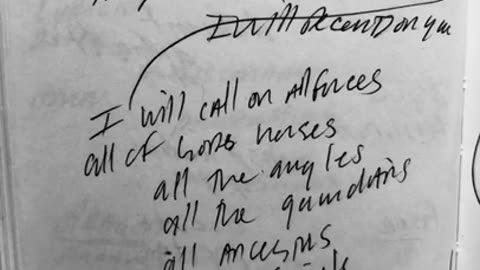 I will descend on you
I will call on all forces
all of horses
all the angles
all the guardians
all ancestors